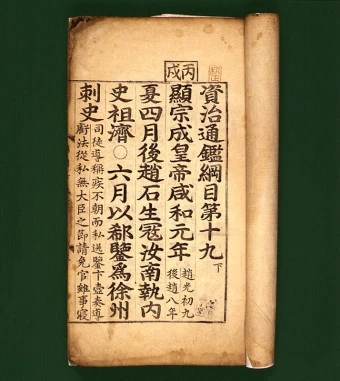 資治通鑑綱目第十九下
丙戌
顯宗成皇帝咸和元年
趙光初九
後趙八年
夏四月後趙石生寇汝南執內
史祖濟○六月以郗鑒爲徐州
刺史
司徒導稱疾不朝而私送鑒卞壼奏導
虧法從私無大臣之節請免官雖事寢